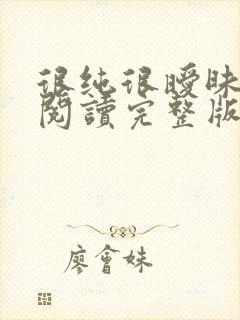 很純很曖昧
閱讀完整版
廖會妹